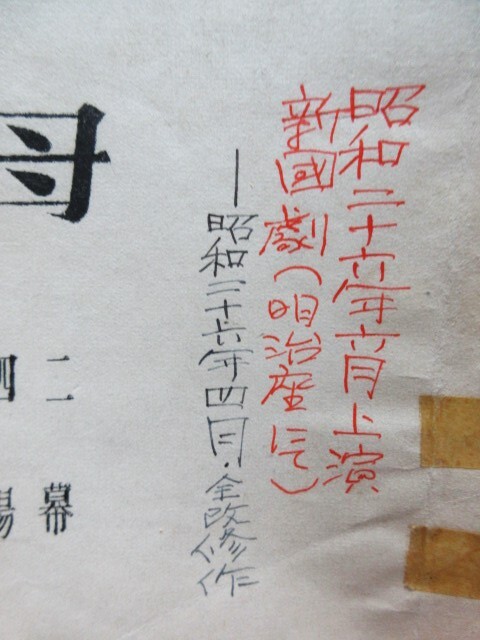 昭和二十六年六月上演
新國劇(明治座にて)
―昭和三十六年四月・全改修作
母
二幕
四場